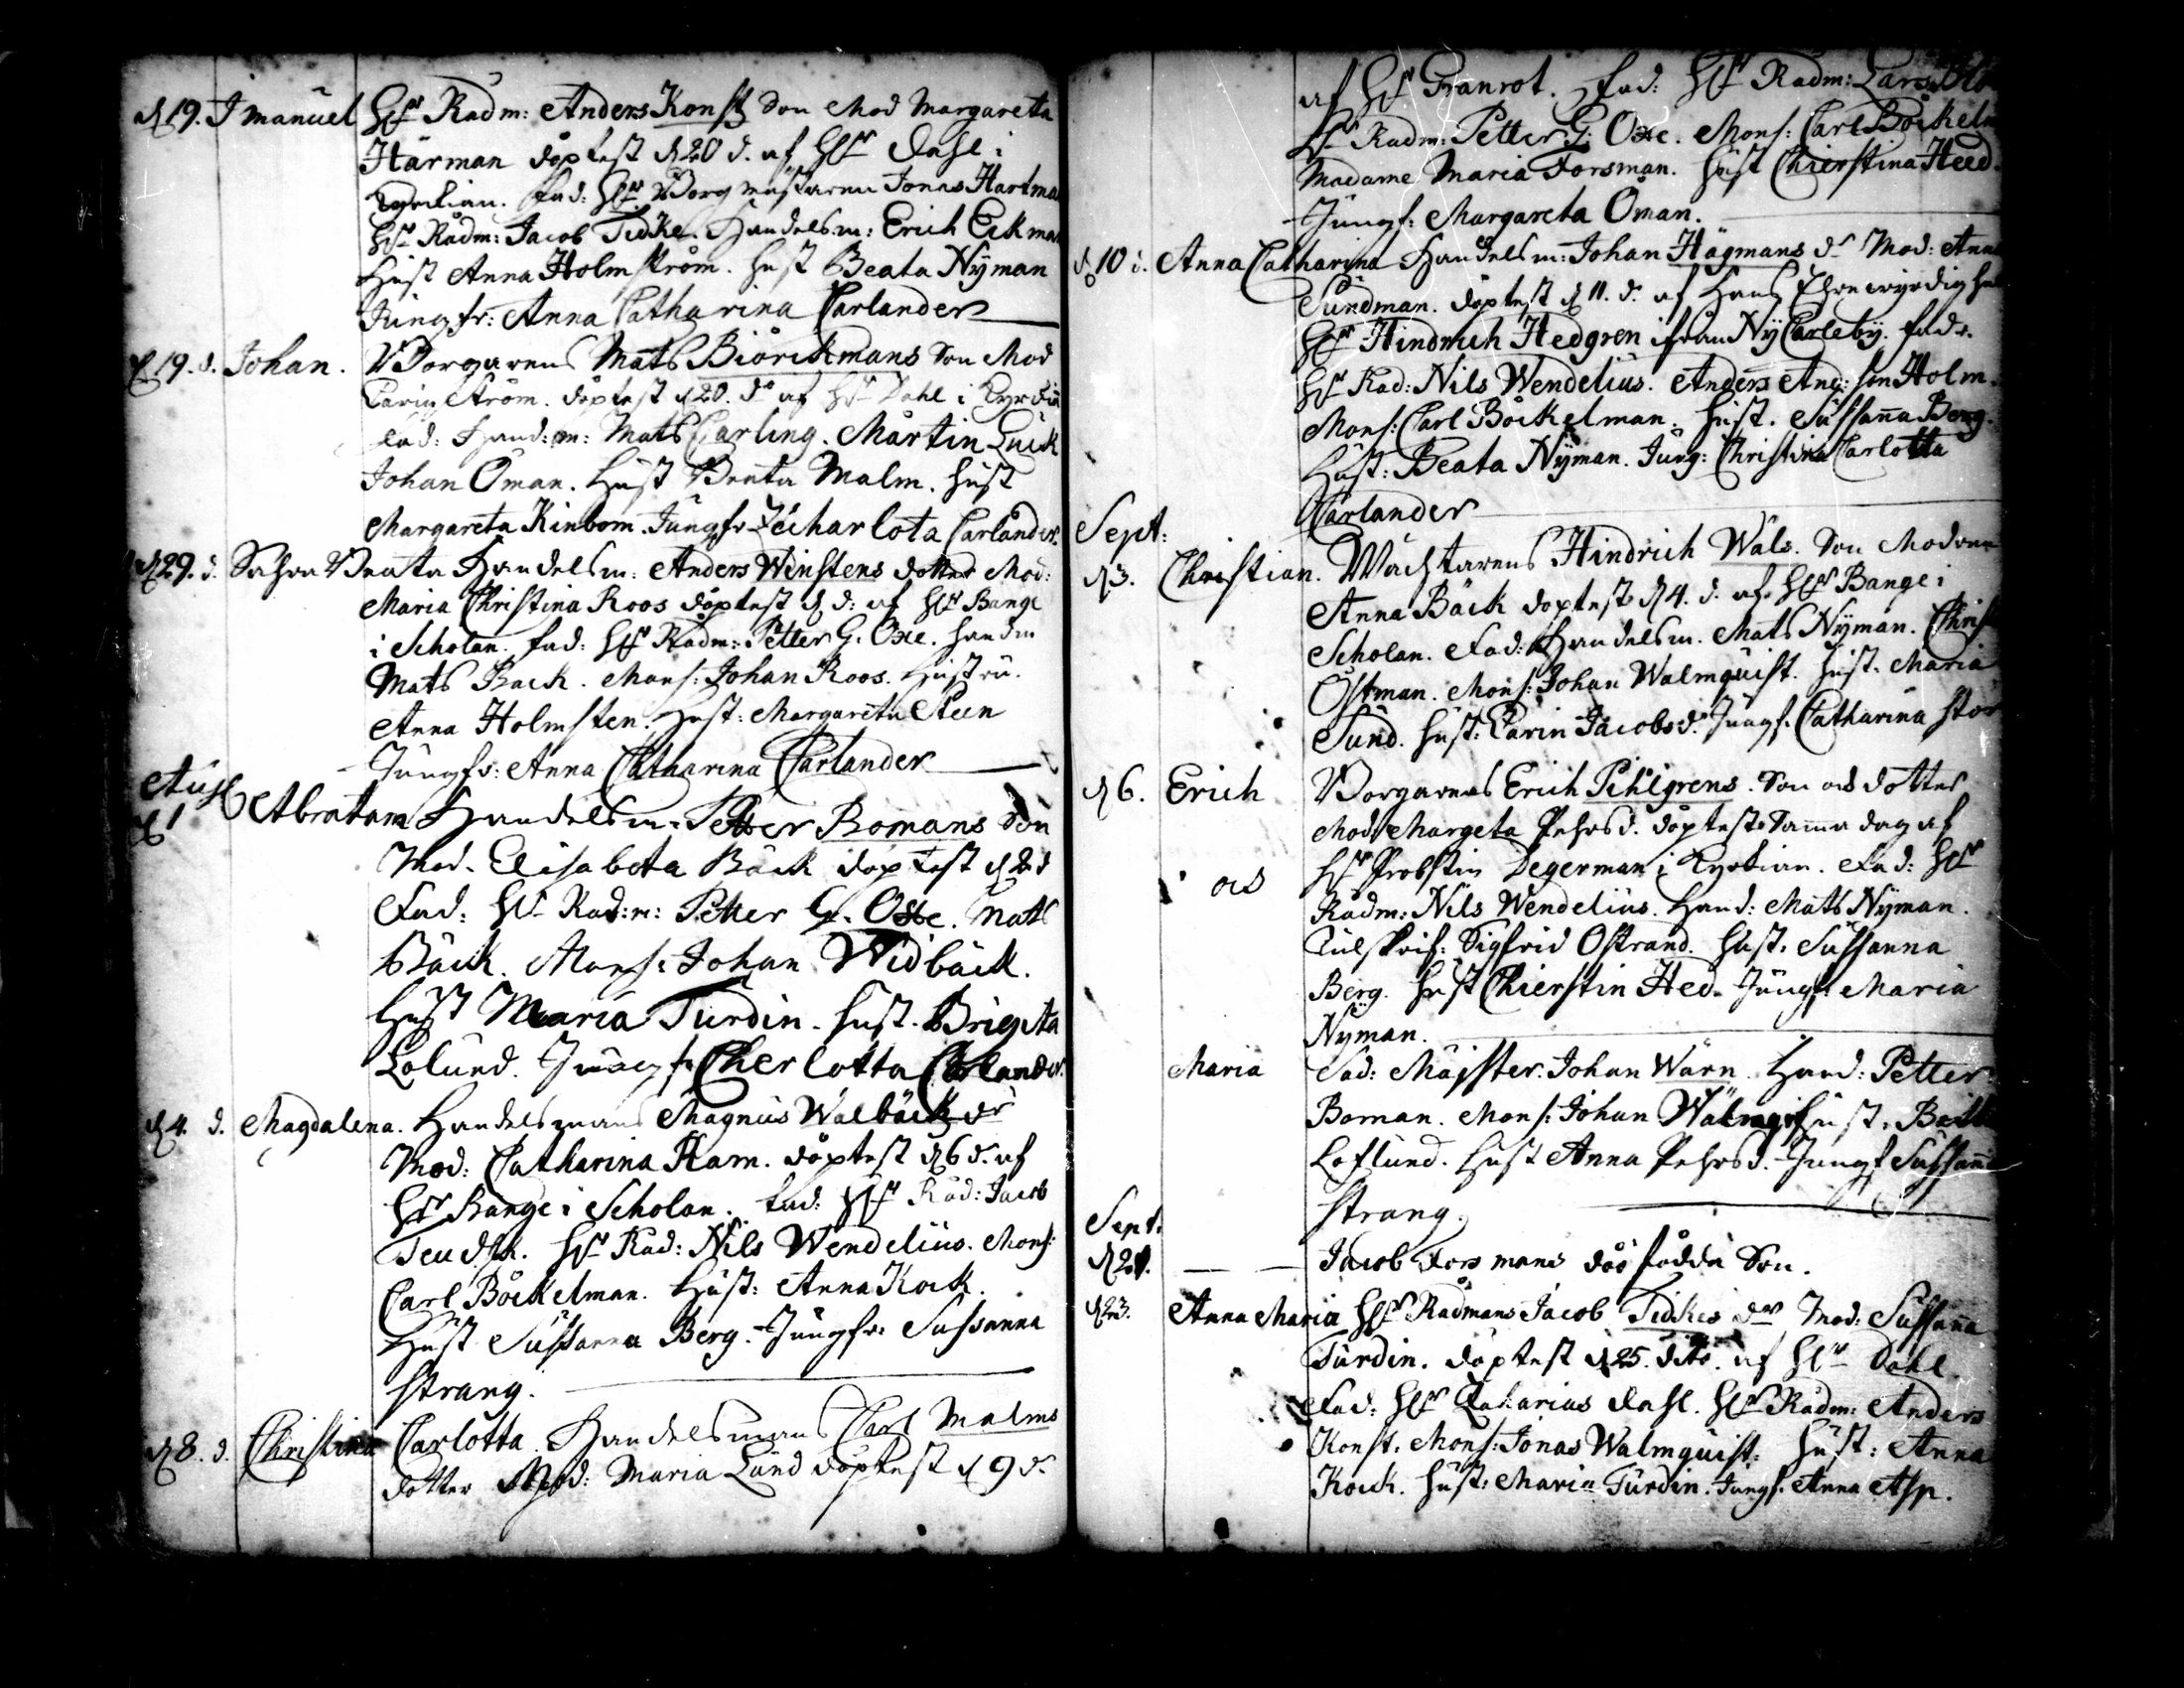 d 19. Imanuel Hr Rådm: Anders Konst Son Mod Margareta
Härman döptest d 20 d. af Hr Dahl i
Kyrckian. fad: Hr Borgmästaren Jonas Hartma
Hr Rådm: Jacob Tidke. Handelsm: Erich Eckman
Hust Anna Holmström. hust Beata Nÿman
Jungfr: Anna Catharina Carlander
d 19. d. Johan. Borgarens Mats Biörckmans Son Mod
Carin Ström. döptest d 20. do af Hr Dahl i Kyrckia
fad: Hand:m: Mats Carling. Mårtin Luck
Johan Öman. Hust Beata Malm. hust
Margareta Kinbom. Jungfr Charlota Carlander.
d 29. d. Sahra Beata Handelsm: Anders Winstens dotter Mod:
Maria Christina Roos döptest d d: af Hr Bange
i Scholan. fad: Hr Rådm: Petter G. Oxe. handm
Mats Back. Mons: Johan Roos. Hustru.
Anna Holmsten. Hust: Margareta Steen
Jungfr: Anna Catharina Carlander
Aug
d 1 Abraham Handelsm: Petter Bomans Son
Mod. Elisabeta Bäck döptest d 2 d
Fad: Hr Rad:m: Petter G. Oxe. Mats
Bäck. Mons: Johan Widbäck.
Hust Maria Turdin. hust. Brigita
Lolund. Jungf: Cherlotta Carlander.
d 4. d. Magdalena. Handelsmans Magnus Walbäck dr
Mod: Catharina Ram. döptest d 6 d. af
Hr Bange i Scholan. fad: Hr Råd: Jacob
Hr Rad: Nils Wendelius. Mons:
Carl Böckelman. Hust: Anna Kock.
Hust Sussanna Berg. Jungfr: Sussanna
Strang.
d 8. d. Christina Carlotta. Handelsmans Carl Malms
dotter Mod: Maria Lund döptest d 9 d.
af Hr Granrot. fad: Hr Radm: Lars
Hr Radm: Petter G: Oxe. Mons: Carl Böckelm
Madame Maria Forsman. hust Chierstina Heed.
Jungf: Margareta Öman.
d 10 d. Anna Catharina Handelsm: Johan Hägmans dr Mod: Anna
Sundman. döptest d 11. d. af Hans Ehrewyrdighe
Hr Hindrich Hedgren ifrån Nÿ Carlebÿ. fad:
Hr Rad: Nils Wendelius. Anders And:son Holm.
Mons: Carl Böckelman. hust. Sussanna Berg.
Hust: Beata Nÿman. Jung: Christina Carlotta
Carlander
Sept:
d 3. Christian. Wachtarens Hindrich Wäls. Son Modren
Anna Bäck döptest d 4. d. af Hr Bange i
Scholan. fad: Handelsm. Mats Nÿman. Christ
Östman. Mons: Johan Walmquist. hust. Maria
Sund. hust: Carin Jacobsd. Jungf. Catharina Stor
d 6. Erich Borgarens Erich Pihlgrens. Son och dotter
Mod: Margeta Pehrsd. döptest samma dag af
och Hr Probstin Degerman i Kyrkian. fad: Hr
Rådm: Nils Wendelius. Hand: Mats Nÿman.
Tulskrif: Sigfrid Ostrand. hust. Sussanna
Berg. hust Chierstin Hed. Jungf: Maria
Nyman.
Maria Fad: Mäjster: Johan Wärn. Hand: Petter
Boman. Mons: Johan Walmqi hust.
Loflund. Hust Anna Pehrsd. Jungf Sussanna
Strang.
Sept.
d 21. — — Jacob Forsmans död födda Son.
d 23. Anna Maria Hr Rådmans Jacob Tidkes dr Mod: Sussanna
Turdin. döptest d 25. dito. af Hr Dahl.
Fad: Hr Zakarias Dahl. Hr Rådm: Anders
Konst. Mons: Jonas Walmquist. hust: Anna
Kock. hust: Maria Turdin. Jungf. Anna Asp.